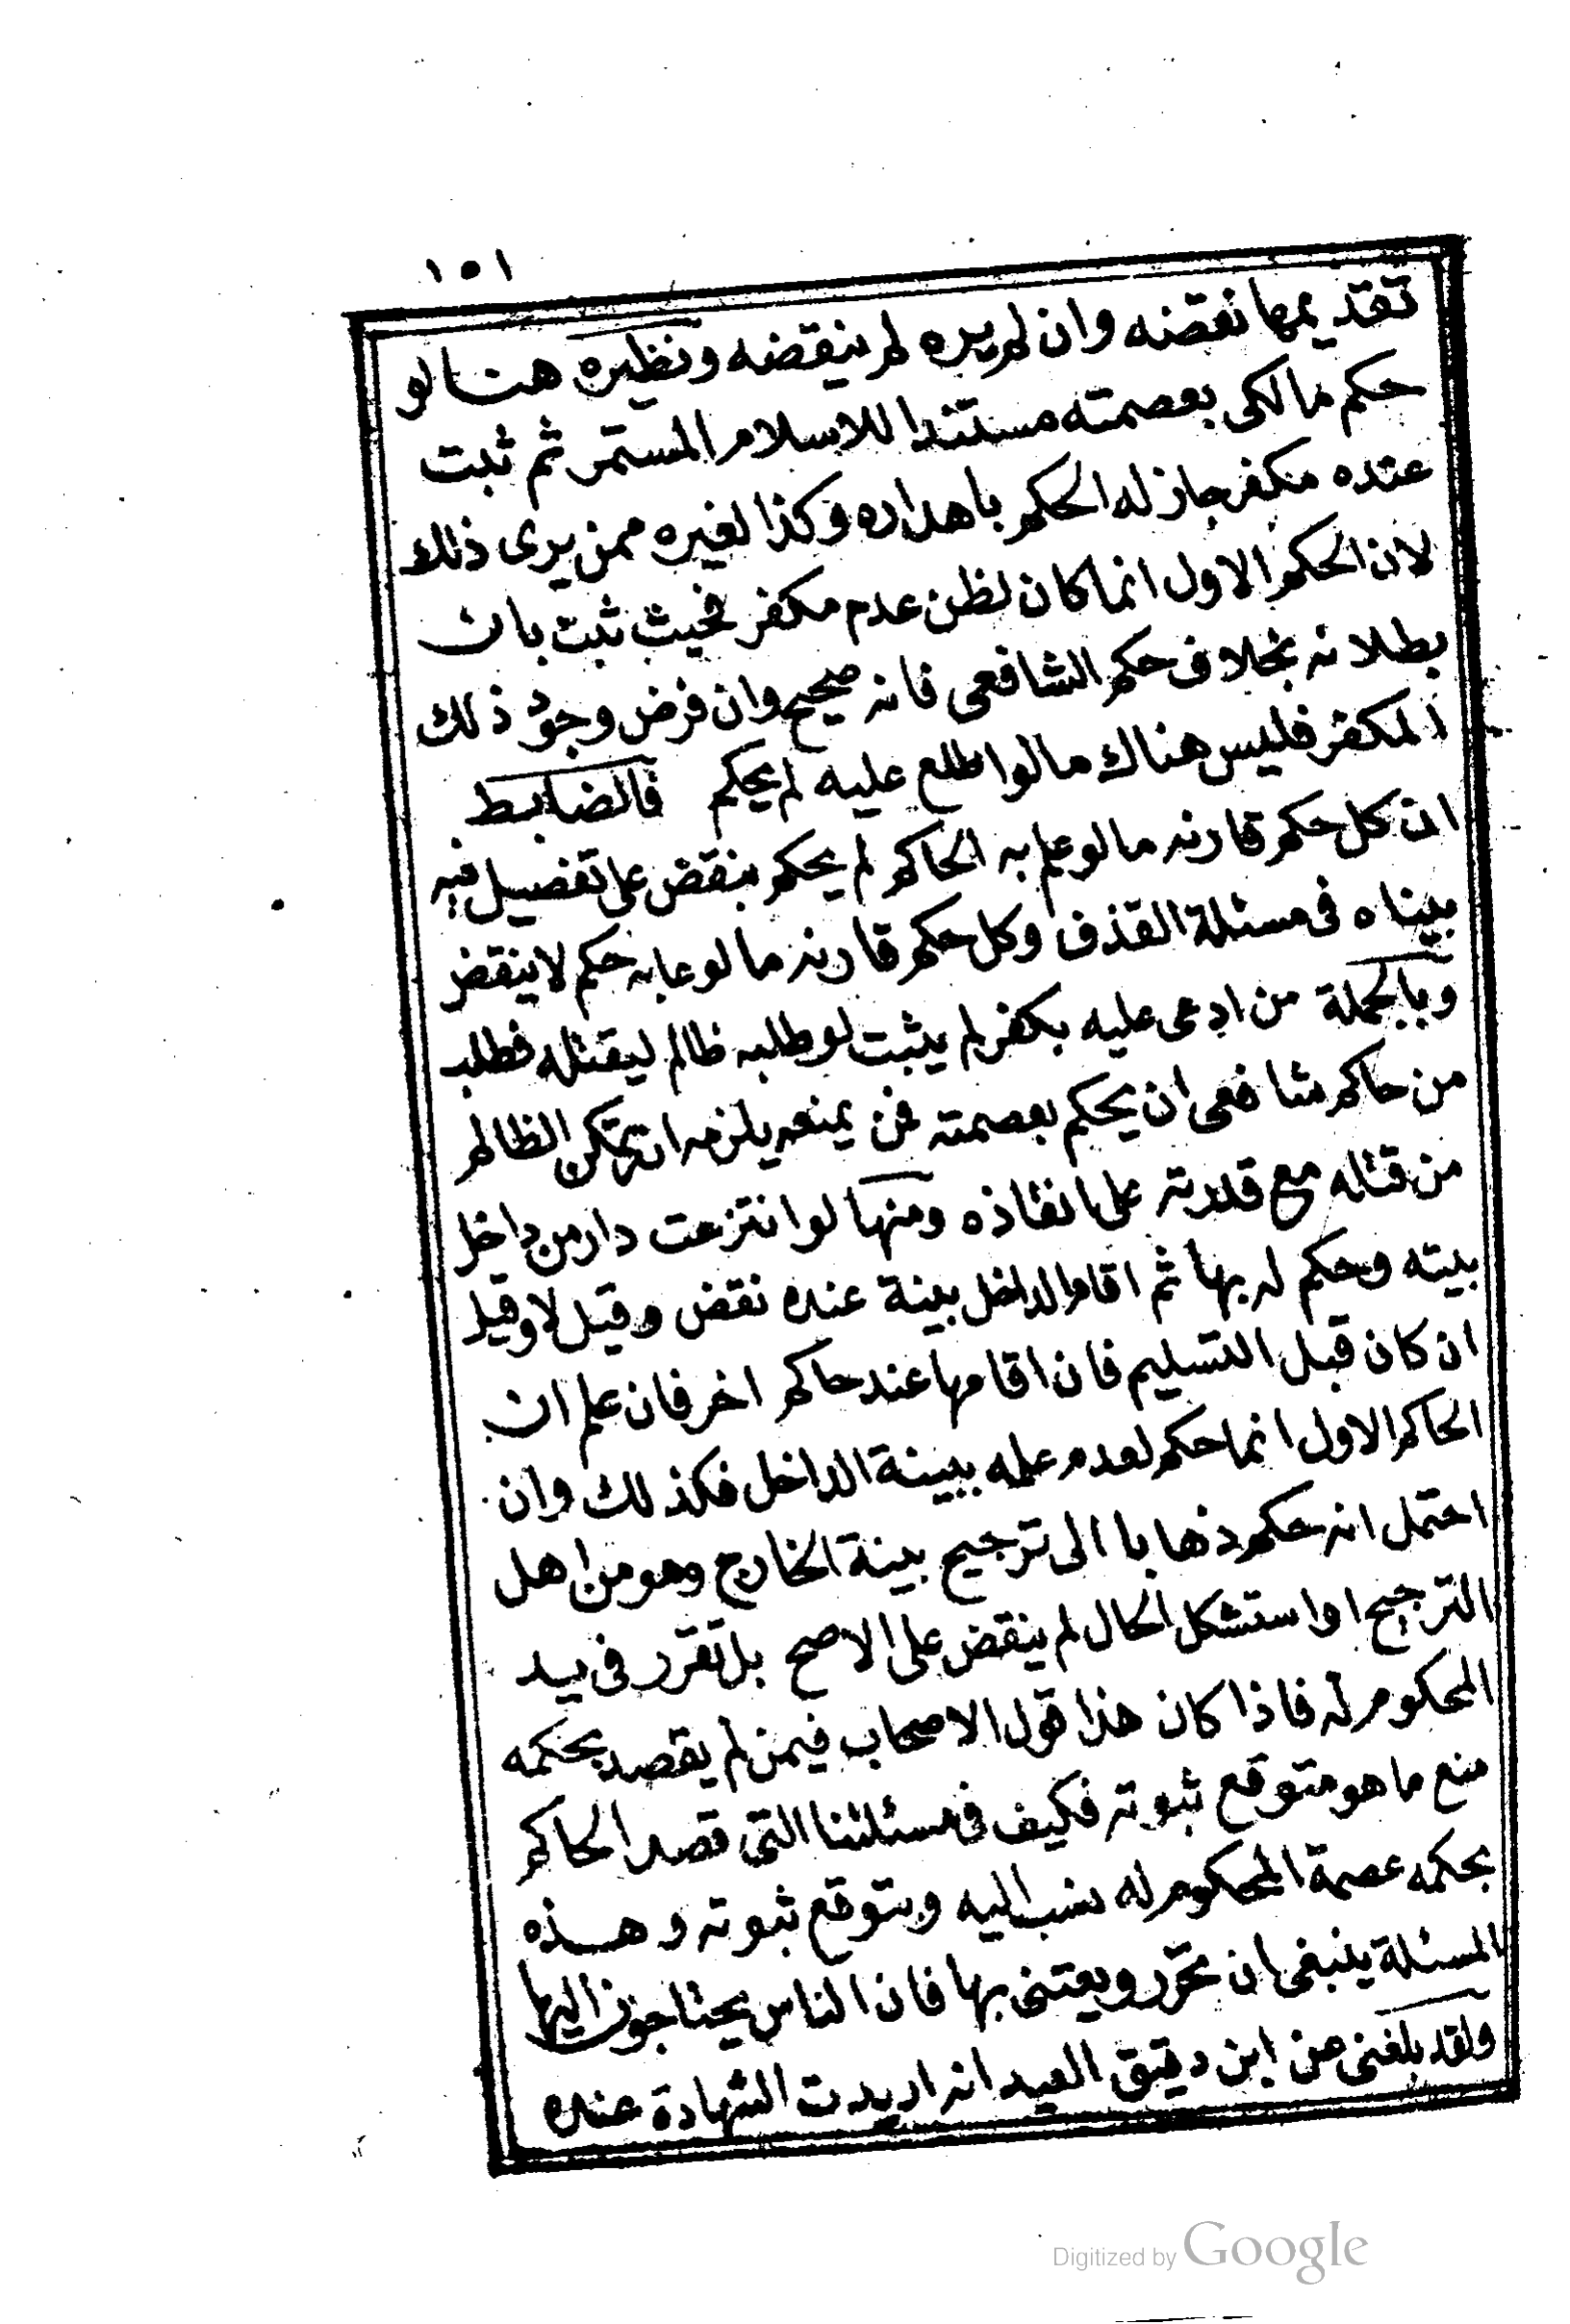 ١٥١
تقديمها نقضه وان لم يره لم ينقضه ونظيره هنا لو
حكم مالكى بعصمته مستندا للاسلام المستمر ثم ثبت
عنده مكفر جاز له الحكم باهداره وكذا لغيره ممن يرى ذلك
لان الحكم الاول انما كان لظن عدم مكفر فحيث ثبت بان
بطلانه بخلاف حكم الشافعى فانه صحيح وان فرض وجود ذلك
المكفر فليس هناك مالو اطلع عليه لم يحكم فالضابط
ان كل حكم قارنه مالو علم به الحاكم لم يحكم ينقض على تفصيل فيه
بيناه فى مسئلة القذف وكل حكم قارنه مالو علم به حكم لا ينقض
وبالجملة من ادعى عليه بكفر لم يثبت لو طلبه ظالم ليقتله فطلب
من حاكم شافعى ان يحكم بعصمته فمن يمنعه يلزمه ان يمكن الظالم
من قتله مع قدرته على انقاذه ومنها لو انتزعت دار من داخل
بيته وحكم له بها ثم اقام الداخل بينة عنده نقض وقيل لا وقيل
ان كان قبل التسليم فان اقامها عند حاكم اخر فان علم ان
الحاكم الاول انما حكم لعدم علمه ببينة الداخل فكذلك وان
احتمل انه حكم ذهابا الى ترجيح بينة الخارج وهو من اهل
الترجيح او استشكل الحال لم ينقض على الاصح بل تقرر فى يد
المحكوم له فاذا كان هذا قول الاصحاب فيمن لم يقصد بحكمه
منع ما هو متوقع ثبوته فكيف فى مسئلتنا التى قصد الحاكم
بحكمه عصمة المحكوم له نسب اليه ويتوقع ثبوته وهذه
المسئلة ينبغى ان تحرر ويعتنى بها فان الناس يحتاجون اليها
ولقد بلغنى عن ابن دقيق العيد انه اريدت الشهادة عنده
Digitized by Google